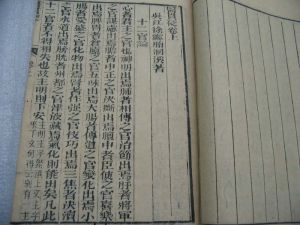 醫貫砭卷上
吳江徐靈胎洄溪著
十二官論
心者君主之官也神明出焉肺者相傅之官治節出焉肝者將軍
之官謀慮出焉膽者中正之官決斷出焉膻中者臣使之官喜樂
出焉脾胃者倉廩之官五味出焉大腸者傳道之官變化出焉小
腸者受盛之官化物出焉腎者作强之官伎巧出焉三焦者決瀆
之官水道出焉膀胱者州都之官津液藏焉氣化則能出矣凡此
十二官者不得相失也故主明則下安